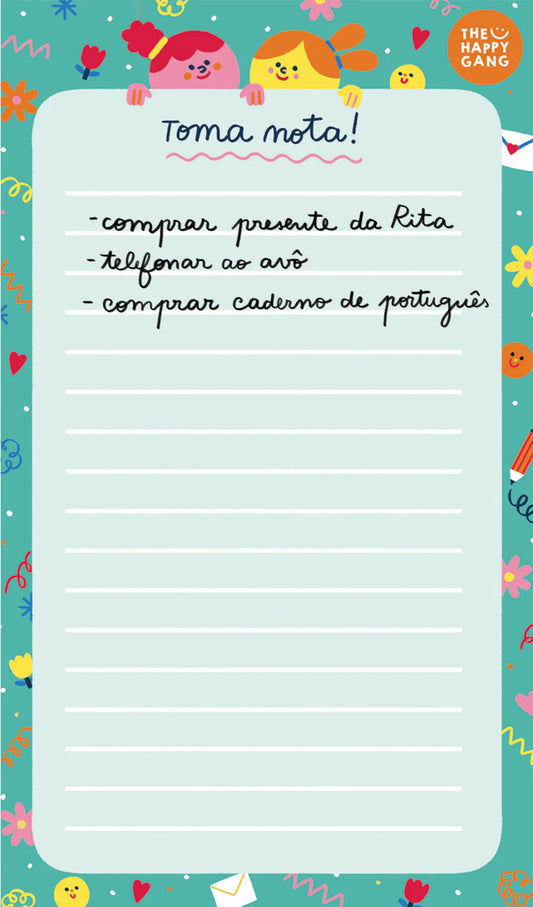 THE
HAPPY
GANG
Toma nota!
-comprar presente da Rita
-telefonar ao avô
- comprar caderno de português